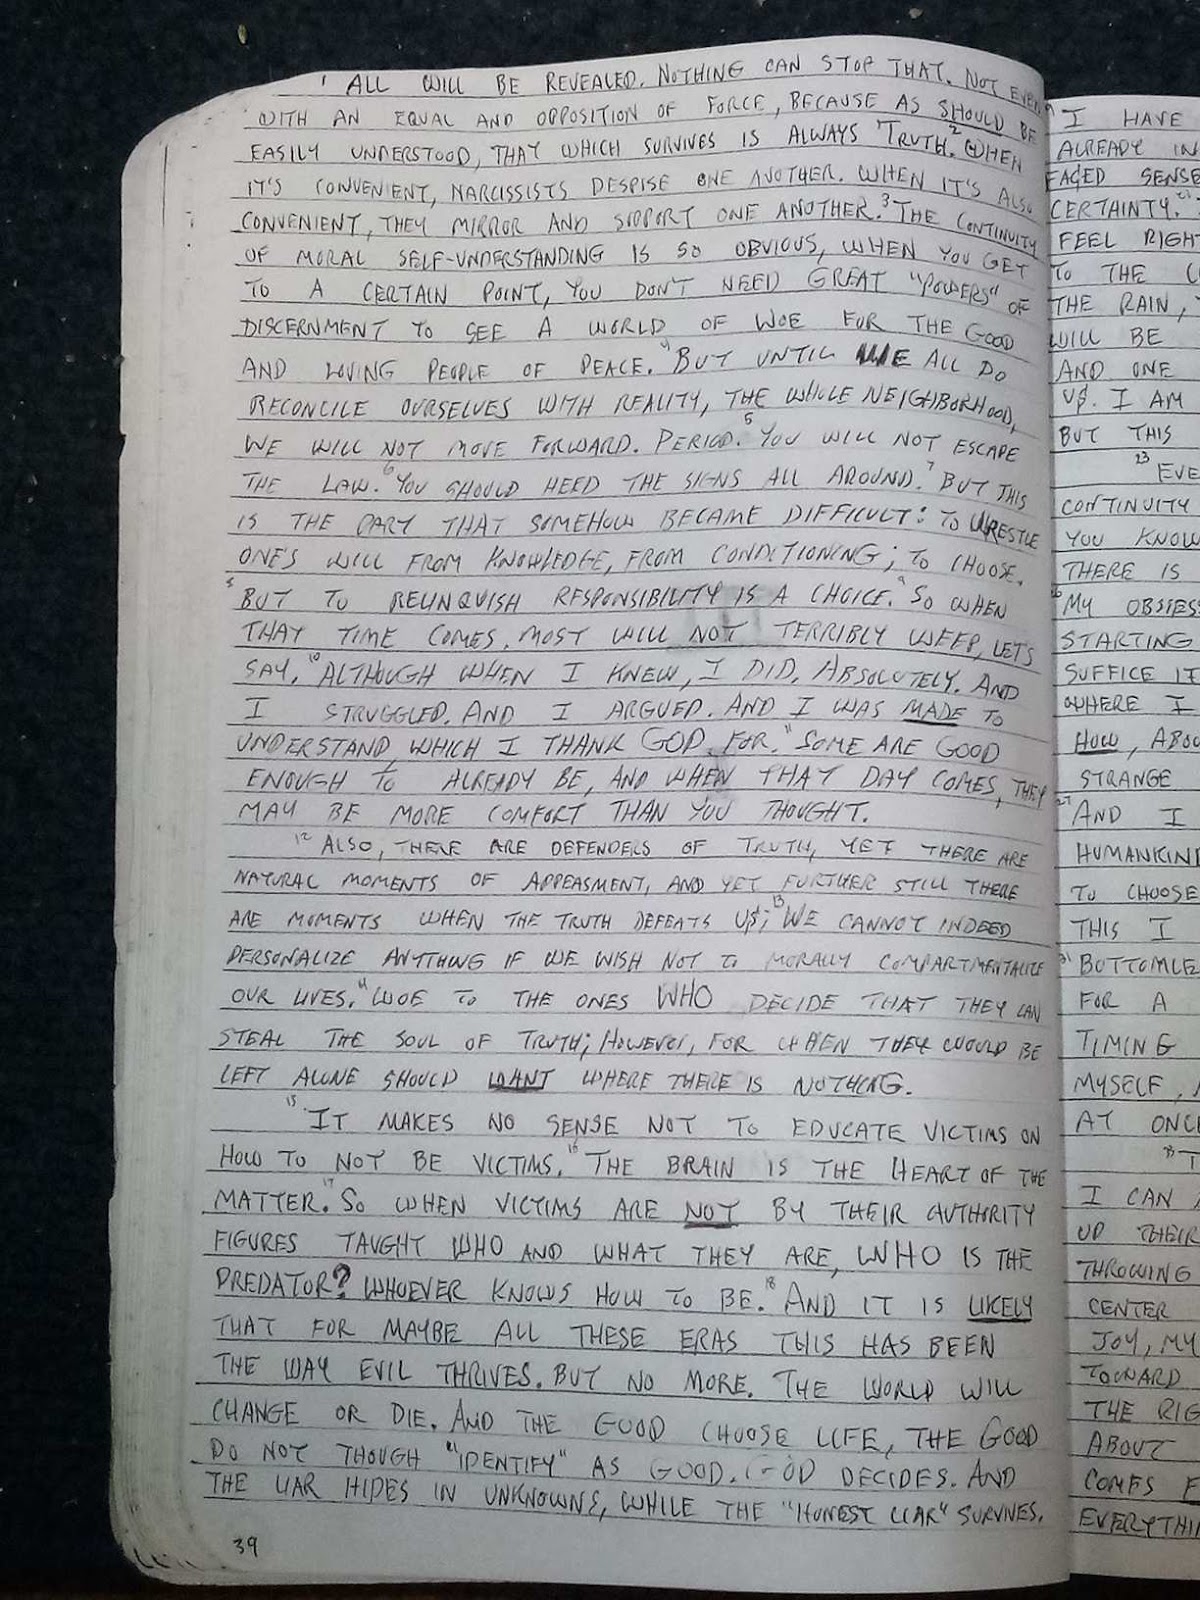 ¹ ALL WILL BE REVEALED. NOTHING CAN STOP THAT. NOT EVEN
WITH AN EQUAL AND OPPOSITION OF FORCE, BECAUSE AS SHOULD BE
EASILY UNDERSTOOD, THAT WHICH SURVIVES IS ALWAYS TRUTH. ² WHEN
IT'S CONVENIENT, NARCISSISTS DESPISE ONE ANOTHER. WHEN IT'S ALSO
CONVENIENT, THEY MIRROR AND SUPPORT ONE ANOTHER. ³ THE CONTINUITY
OF MORAL SELF-UNDERSTANDING IS SO OBVIOUS, WHEN YOU GET
TO A CERTAIN POINT, YOU DON'T NEED GREAT "POWERS" OF
DISCERNMENT TO SEE A WORLD OF WOE FOR THE GOOD
AND LOVING PEOPLE OF PEACE. ⁴ BUT UNTIL WE ALL DO
RECONCILE OURSELVES WITH REALITY, THE WHOLE NEIGHBORHOOD,
WE WILL NOT MOVE FORWARD. PERIOD. ⁵ YOU WILL NOT ESCAPE
THE LAW. ⁶ YOU SHOULD HEED THE SIGNS ALL AROUND. ⁷ BUT THIS
IS THE PART THAT SOMEHOW BECAME DIFFICULT: TO WRESTLE
ONE'S WILL FROM KNOWLEDGE, FROM CONDITIONING; TO CHOOSE.
⁸ BUT TO RELINQUISH RESPONSIBILITY IS A CHOICE. ⁹ SO WHEN
THAT TIME COMES, MOST WILL NOT TERRIBLY WEEP, LET'S
SAY. ¹⁰ ALTHOUGH WHEN I KNEW, I DID. ABSOLUTELY. AND
I STRUGGLED. AND I ARGUED. AND I WAS MADE TO
UNDERSTAND, WHICH I THANK GOD FOR. ¹¹ SOME ARE GOOD
ENOUGH TO ALREADY BE, AND WHEN THAT DAY COMES, THEY
MAY BE MORE COMFORT THAN YOU THOUGHT.
¹² ALSO, THERE ARE DEFENDERS OF TRUTH, YET THERE ARE
NATURAL MOMENTS OF APPEASMENT, AND YET FURTHER STILL THERE
ARE MOMENTS WHEN THE TRUTH DEFEATS U$; ¹³ WE CANNOT INDEED
PERSONALIZE ANYTHING IF WE WISH NOT TO MORALLY COMPARTMENTALIZE
OUR LIVES. ¹⁴ WOE TO THE ONES WHO DECIDE THAT THEY CAN
STEAL THE SOUL OF TRUTH; HOWEVER, FOR WHEN THEY WOULD BE
LEFT ALONE SHOULD WANT WHERE THERE IS NOTHING.
¹⁵ IT MAKES NO SENSE NOT TO EDUCATE VICTIMS ON
HOW TO NOT BE VICTIMS. ¹⁶ THE BRAIN IS THE HEART OF THE
MATTER. ¹⁷ SO WHEN VICTIMS ARE NOT BY THEIR AUTHORITY
FIGURES TAUGHT WHO AND WHAT THEY ARE, WHO IS THE
PREDATOR? WHOEVER KNOWS HOW TO BE. ¹⁸ AND IT IS LIKELY
THAT FOR MAYBE ALL THESE ERAS THIS HAS BEEN
THE WAY EVIL THRIVES. BUT NO MORE. THE WORLD WILL
CHANGE OR DIE. AND THE GOOD CHOOSE LIFE, THE GOOD
DO NOT THOUGH "IDENTIFY" AS GOOD. GOD DECIDES. AND
THE LIAR HIDES IN UNKNOWNS, WHILE THE "HONEST LIAR" SURVIVES.
39
I HAVE
ALREADY IN
FACED SENSE
CERTAINTY.
FEEL RIGHT
TO THE
THE RAIN,
WILL BE
AND ONE
U$. I AM
BUT THIS
²³ EVE
CONTINUITY
YOU KNOW
THERE IS
MY OBSESS
STARTING
SUFFICE IT
WHERE I
HOW, ABOU
STRANGE
²⁷ AND I
HUMANKIND
TO CHOOSE
THIS I
³¹ BOTTOMLE
FOR A
TIMING
MYSELF,
AT ONCE
³³ T
I CAN
UP THEIR
THROWING
CENTER
JOY, MY
TOWARD
THE RIG
ABOUT
COMES F
EVERYTHI